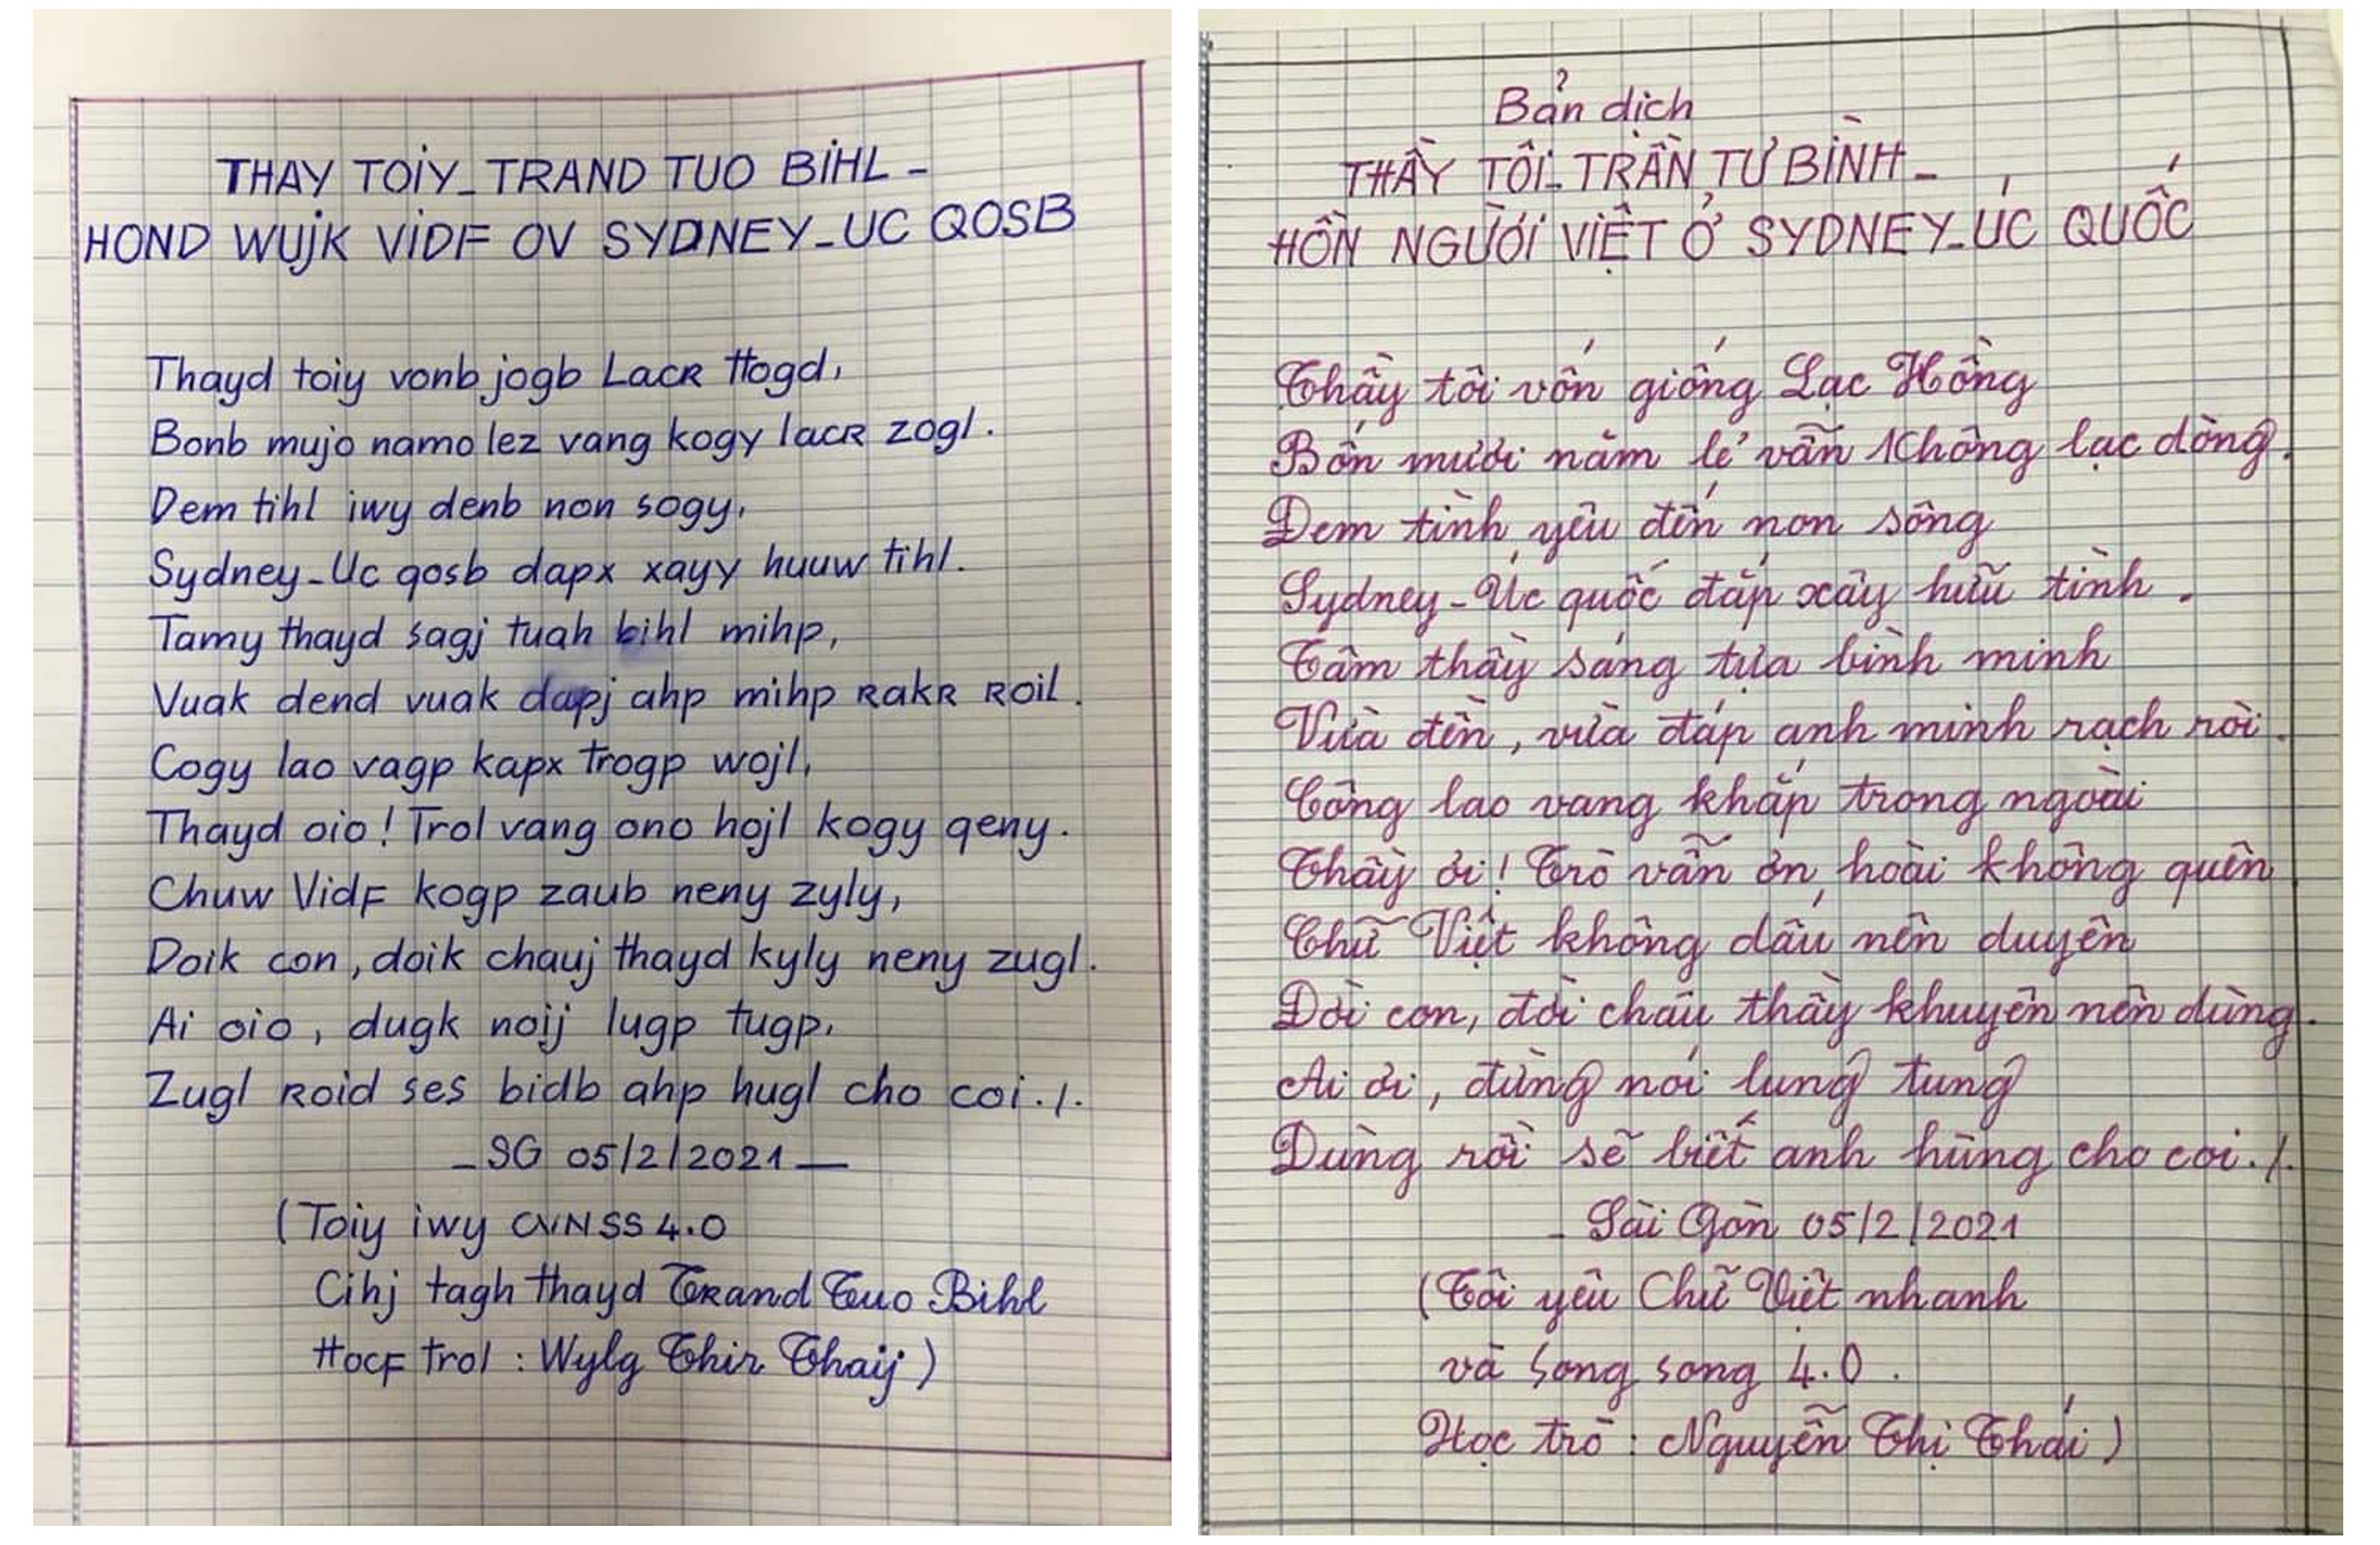 THAY TOIY_TRAND TUO BIHL -
HOND WUJK VIDF OV SYDNEY_UC QOSB
Thayd toiy vonb jogb Lacr Hogd,
Bonb mujo namo lez vang kogy lacr zogl.
Dem tihl iwy denb non sogy,
Sydney_Uc qosb dapx xayy huuw tihl.
Tamy thayd sagj tuah bihl mihp,
Vuak dend vuak dapj ahp mihp rakr roil.
Cogy lao vagp kapx trogp wojl,
Thayd oio! Trol vang ono hojl kogy qeny.
Chuw Vidf kogp zaub neny zyly,
Doik con, doik chauj thayd kyly neny zugl.
Ai oio, dugk noij lugp tugp,
Zugl roid ses bidb ahp hugl cho coi./.
_SG 05/2/2021_
(Toiy iwy CVNSS 4.0
Cihj tagh thayd Trand Tuo Bihl
Hocf trol : Wylg Thir Thaij)
Bản dịch
THẦY TÔI_TRẦN TƯ BÌNH_
HỒN NGƯỜI VIỆT Ở SYDNEY_ÚC QUỐC
Thầy tôi vốn giống Lạc Hồng
Bốn mươi năm lẻ vẫn không lạc dòng.
Đem tình yêu đến non sông
Sydney_Úc quốc đắp xây hữu tình.
Tâm thầy sáng tựa bình minh
Vừa đền, vừa đáp anh minh rạch ròi.
Công lao vang khắp trong ngoài
Thầy ơi! Trò vẫn ơn hoài không quên
Chữ Việt không dấu nên duyên
Đời con, đời cháu thầy khuyên nên dùng.
Ai ơi, đừng nói lung tung
Dùng rồi sẽ biết anh hùng cho coi./.
_ Sài Gòn 05/2/2021
(Tôi yêu Chữ Việt nhanh
và Song song 4.0.
Học trò : Nguyễn Thị Thái)